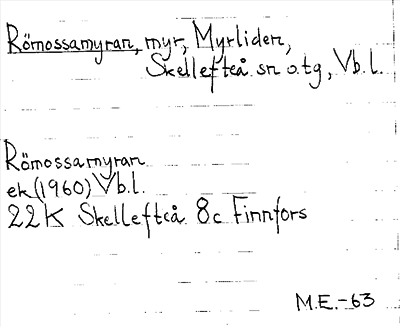 Römossamyran, myr, Myrliden,
Skellefteå sn o. tg, Vb. l.
Römossamyran
ek (1960) Vb. l.
22 K Skellefteå 8c Finnfors
M.E.-63